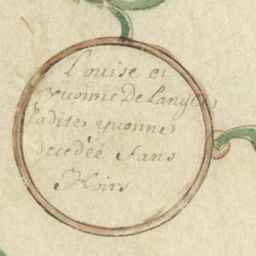 Louise et
yvonne De Langle,
Ladite, yvonne,
decedée sans
Hoirs